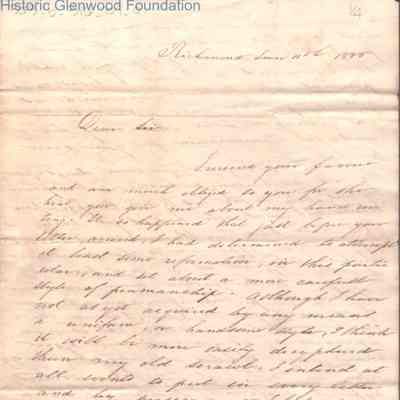 Historic Glenwood Foundation
Richmond
Dear Sir
I received your favour
and am much obliged to you for the
hint you give me about my hand wri
ting. It so happened that just before your
letter arrived, I had determined to attempt
at least some reformation, in this partic
ular, and set about a more careful
style of penmanship. Although I have
not as yet acquired by any means
a uniform or handsome style, I think
it will be more easily deciphered
than my old scrawl. I intend at
all events to put in every letter
and by